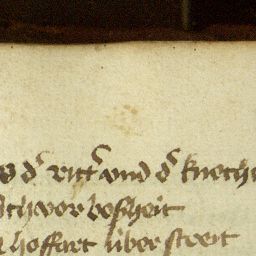 d' ritt' vnd d' knecht
thoor bosheit
hoffart über streit